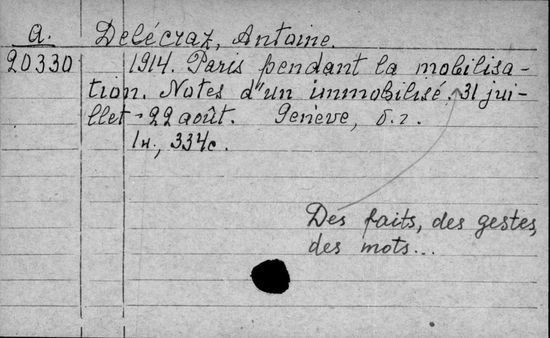 a. Delécraz, Antoine.
20330 1914. Paris pendant la mobilisa-
tion. Notes d'un immobilisé. 31 jui-
llet - 22 août. Genève, б. г.
1н., 334с.
Des faits, des gestes,
des mots...